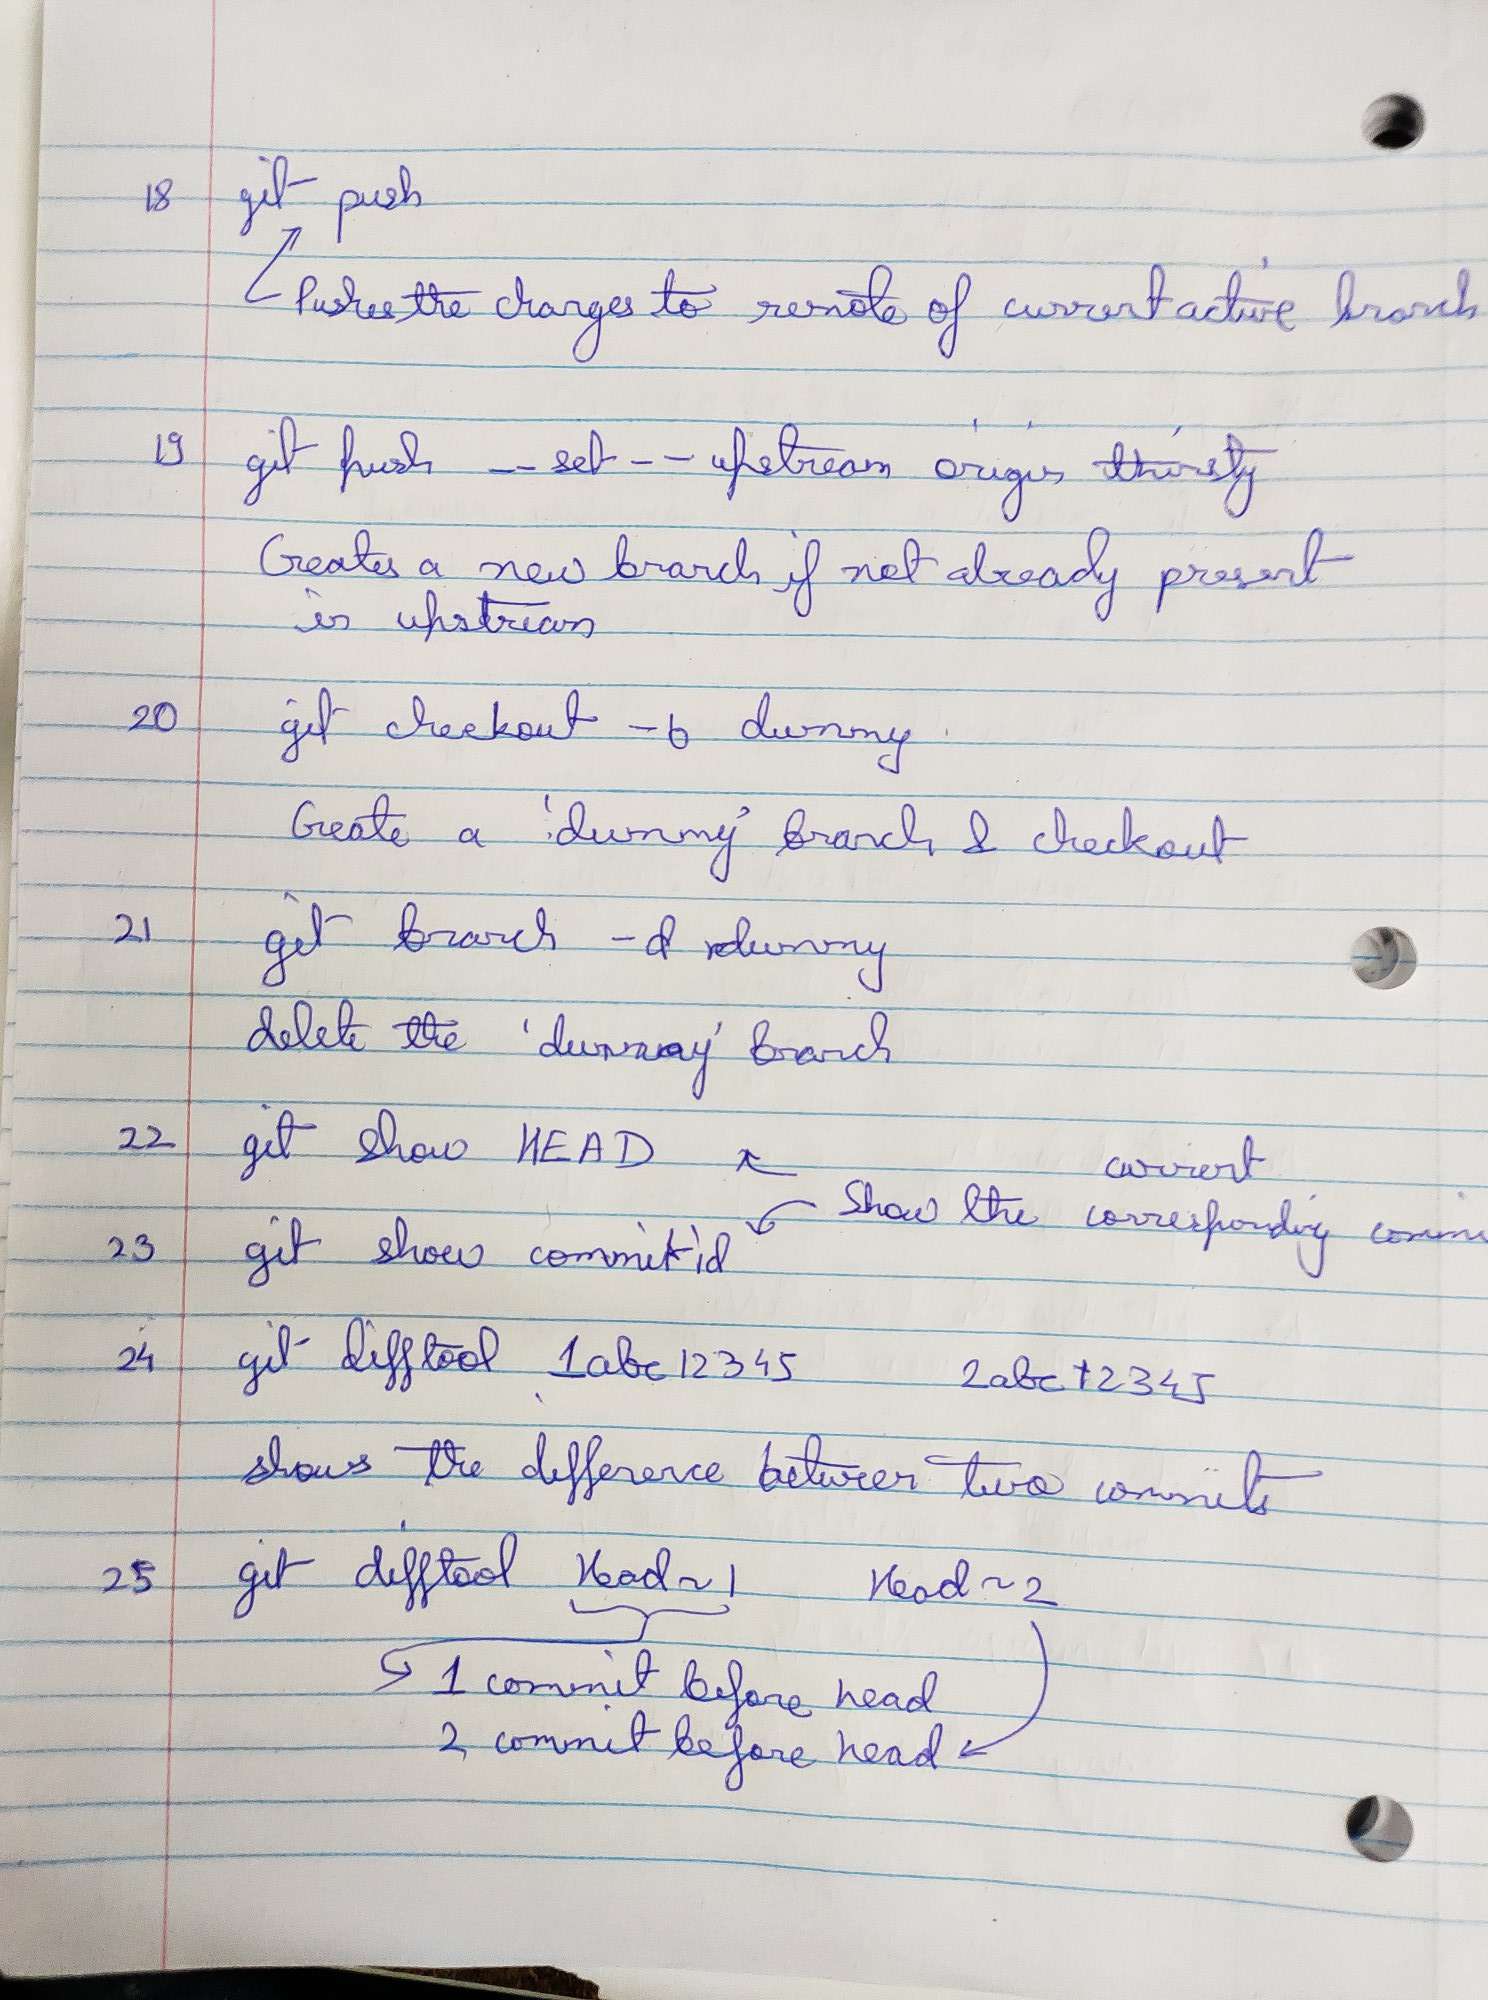 18 git push
Pushes the changes to remote of current active branch
19 git push --set--upstream origin thirsty
Creates a new branch if not already present
in upstream
20 git checkout -b dummy
Create a 'dummy' branch & checkout
21 git branch -d dummy
delete the 'dummy' branch
22 git show HEAD
current
Show the corresponding commi
23 git show commit id
24 git difftool 1abc12345 2abc12345
shows the difference between two commits
25 git difftool Head~1 Head~2
1 commit before head
2 commit before head